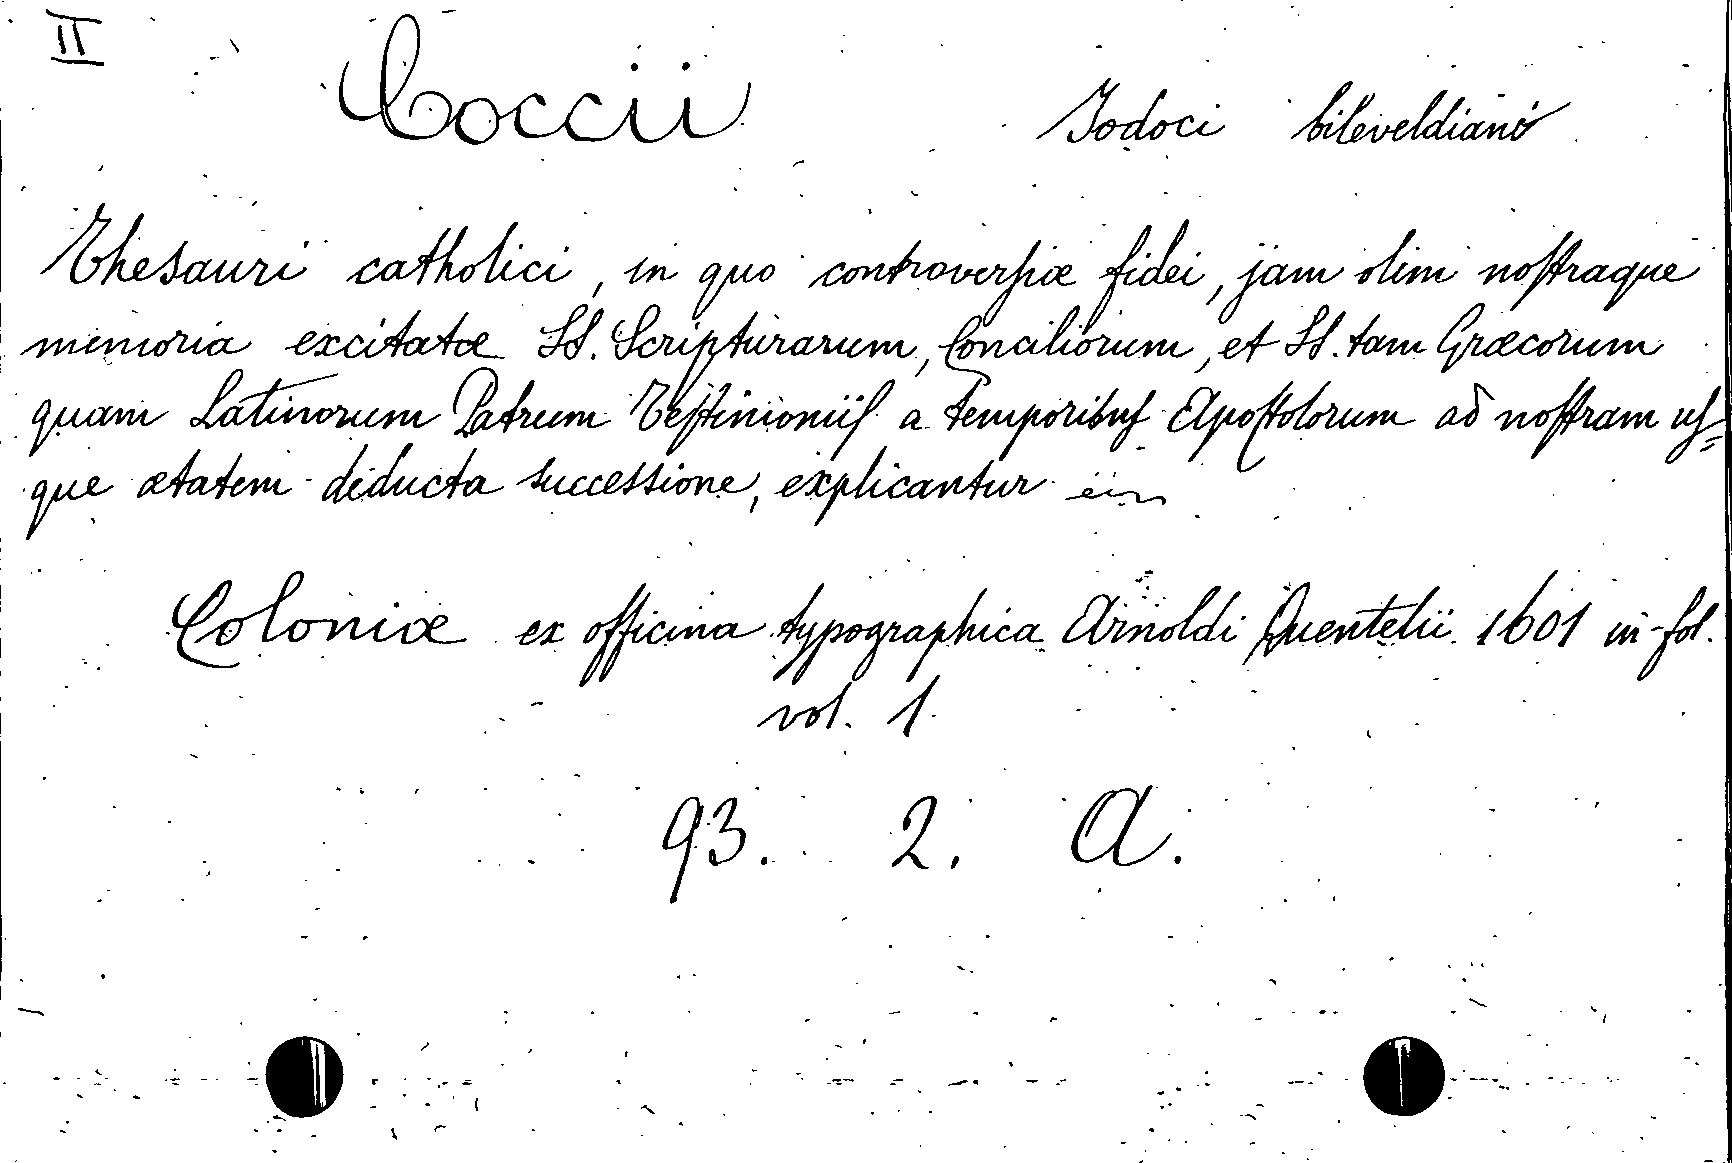 II
Coccii Jodoci bileveldiani
Thesauri catholici, in quo controversiæ fidei, jam olim nostraque
memoria excitatæ SS. Scripturarum, Conciliorum, et SS. tam Græcorum
quam Latinorum Patrum Testimoniis a temporibus Apostolorum ad nostram us=
que ætatem deducta successione, explicantur
Coloniæ ex officina typographica Arnoldi Quentelii 1601 in-fol.
vol. 1.
93. 2. A.